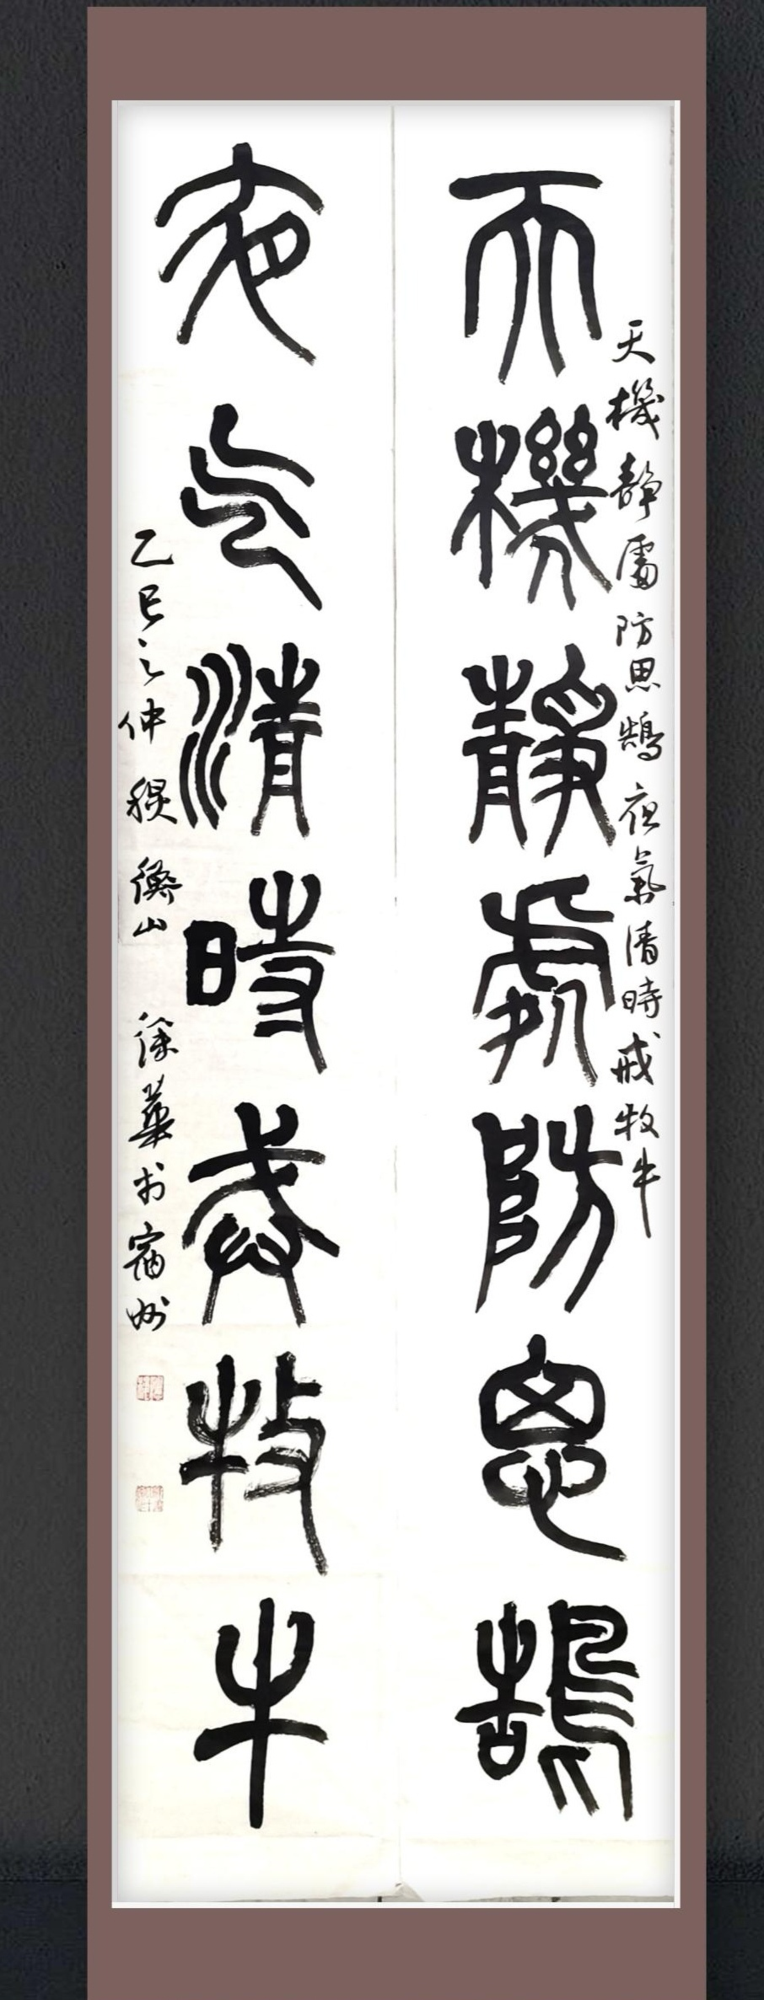 天機靜處防思鵠
天機靜處防思鵠夜氣清時戒牧牛
夜气清時戒牧牛
乙巳之仲穝衡山徐華於宿州